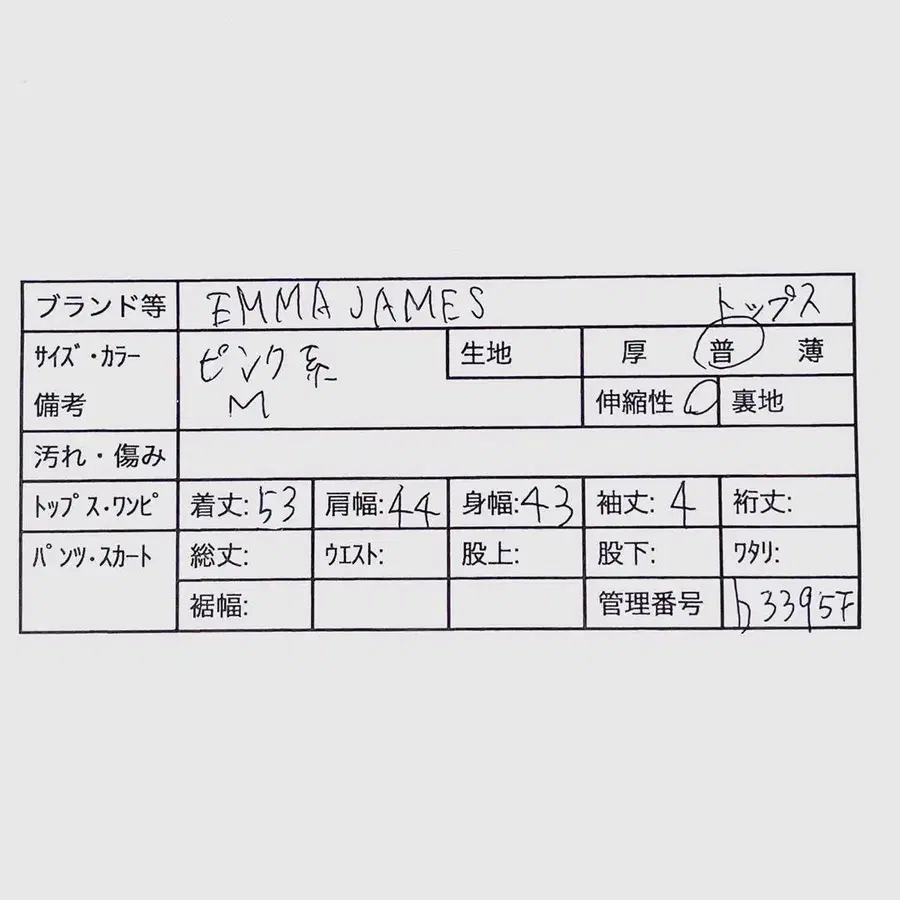 ブランド等 EMMA JAMES トップス
サイズ・カラー ピンク系 生地 厚 普 薄
備考 M 伸縮性 裏地
汚れ・傷み
トップス・ワンピ 着丈:53 肩幅:44 身幅:43 袖丈:4 裄丈:
パンツ・スカート 総丈: ウエスト: 股上: 股下: ワタリ:
裾幅: 管理番号 h3395F